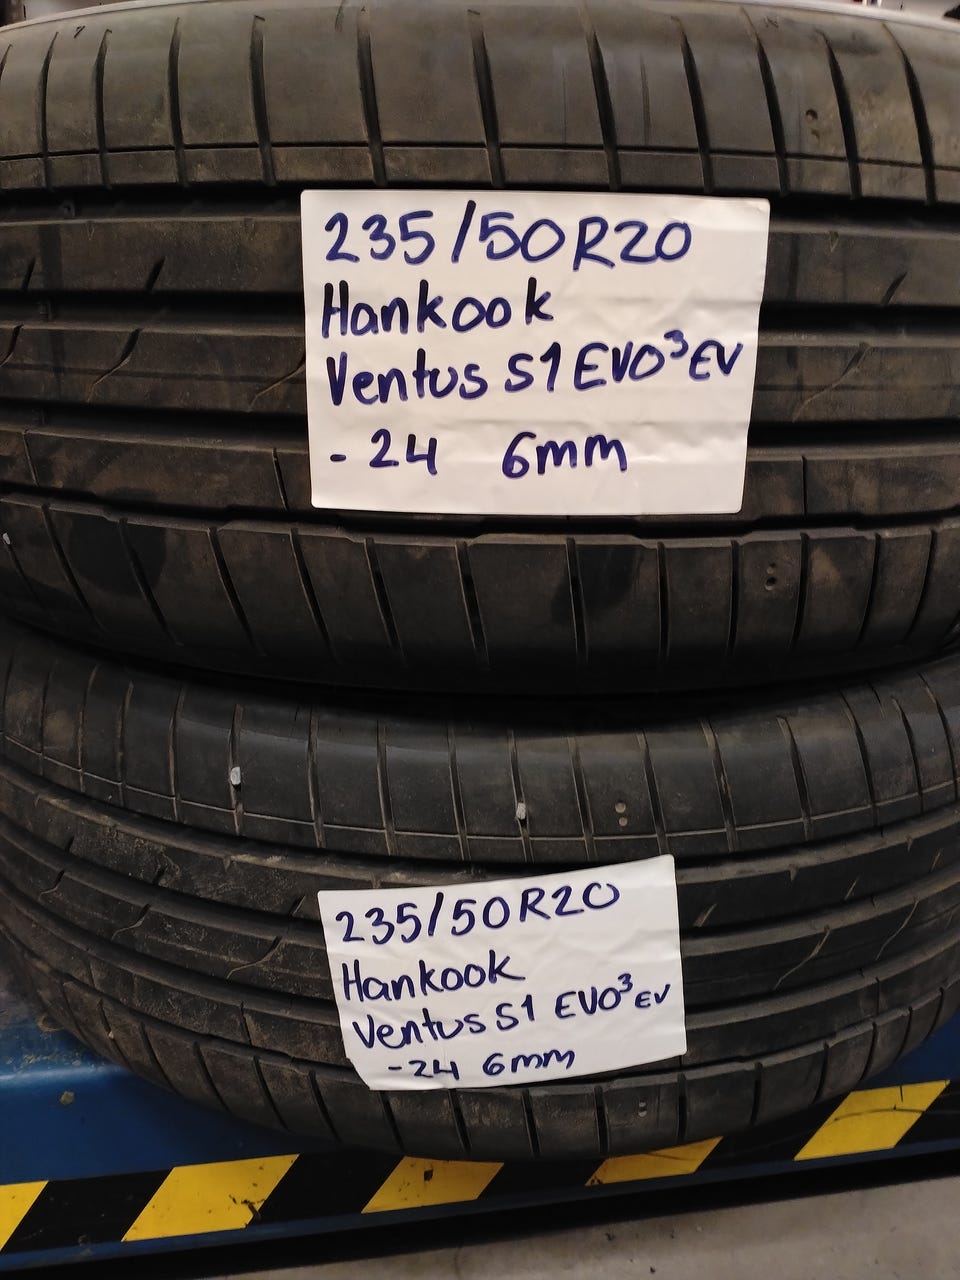 235/50R20
Hankook
Ventus S1 EVO³ EV
- 24 6mm
235/50R20
Hankook
Ventus S1 EVO³ EV
- 24 6mm